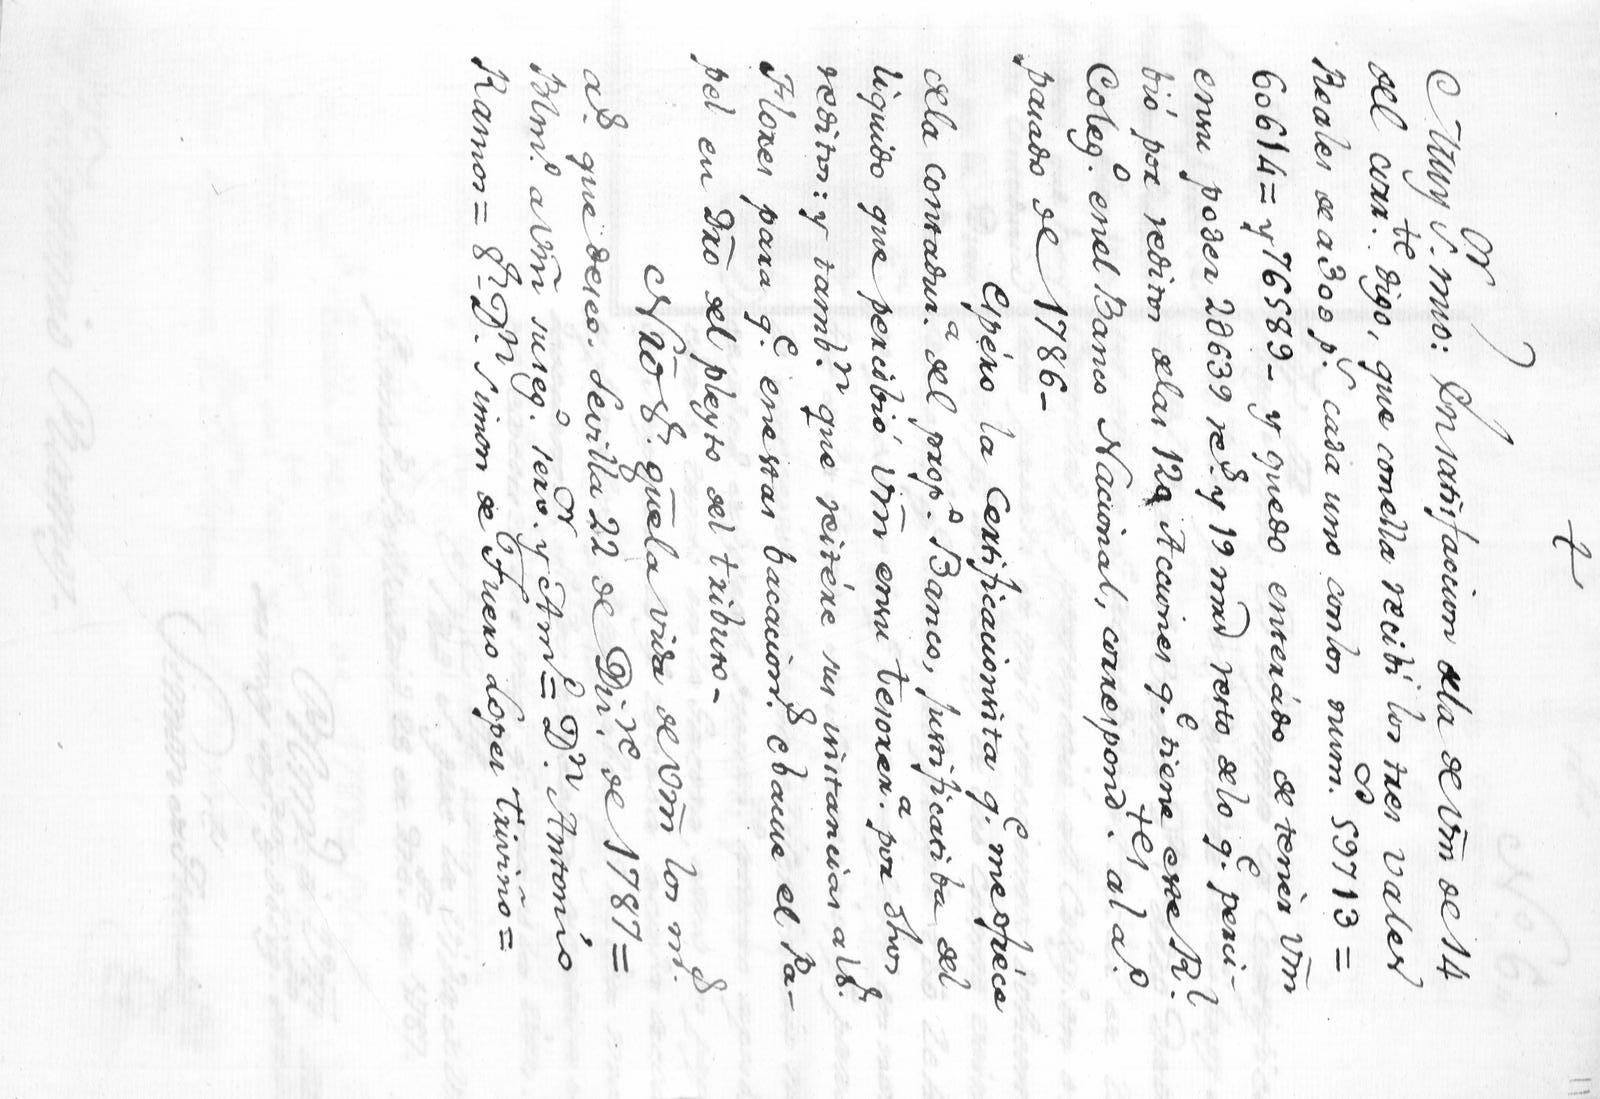 +
Muy S.or mio: En satisfacion dela de Vm de 14
del corr.te digo, que conella recibi los tres vales
Reales de a 300 p.s cada uno con los num.os 59713=
60614= y 76589- y quedo enterádo de tenér Vm
ensu poder 20639 r.s y 19 mrs resto delo q.e perci-
bió por reditos delas 120 Acciones q.e tiene este R.l
Coleg.o enel Banco Nacional, correspond.tes al a.o
pasado de 1786-
Espéro la Certificacionsita q.e me ofrece
dela contadur.a del prop.o Banco, justificatiba del
liquido que percibió Vm ensu tesorer.a por dhos
reditos: y tamb.n que reitére sus instancias al S.r
Flores para q.e enestas bacacion.s ebacue el Pa-
pel en Dro del pleyto del tributo-
Nro S.r güe la vida de Vm los m.s
a.s que deseo. Sevilla 22 de Diz.re de 1787=
Blm.o a Vm su seg.o serv.or y Am.o= D.n Antonio
Ramos= S.r D.n Simon de Afuero Lopez Triviño=